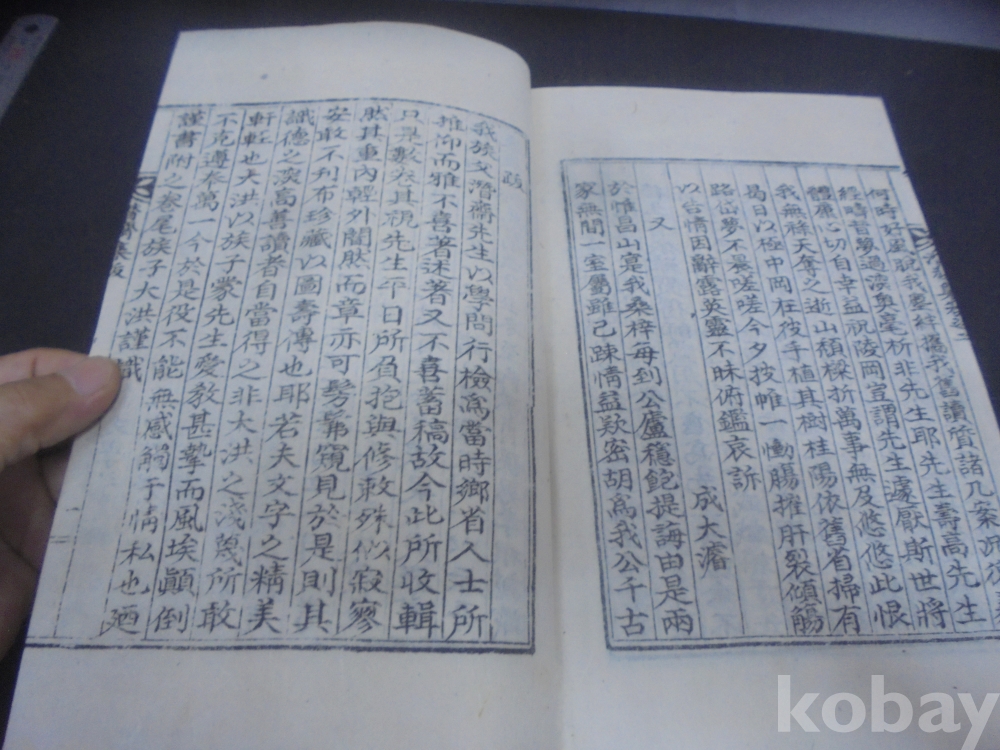 何時好風說我要
經時昔夢過漢奧毫析非先生耶先生壽高先生
體康心切自幸益祝陵岡豈謂先生遽厭斯世將
我無祿天奪之逝山頹樑折萬事無及悠悠此恨
曷日以極中岡在彼手植其樹桂陽依舊省掃有
路岱夢不晨嗟嗟今夕按帷一慟膓摧肝裂傾觴
以告情因辭露英靈不昧俯鑑哀訴
又 成大瀋
於惟昌山寔我桑梓每到公廬穩飽提誨由是兩
家無間一室屬雖已踈情益欵密胡爲我公千古
跋
我族父潛齋先生以學問行檢爲當時鄕省人士所
推仰而雅不喜著述著又不喜蓄稿故今此所收輯
只是數矣其視先生平日所負抱與修敕殊似寂寥
然其重內輕外闇然而章亦可髣髴窺見於是則其
安敢不刊布珍藏以圖壽傳也耶若夫文字之精美
識德之淺高善讀者自當得之非大洪之淺蔑所敢
軒輊也大洪以族子蒙先生愛敎甚摯而風埃顚倒
不克遵奉萬一今於是役不能無感觸于情私也廼
謹書附之卷尾族子大洪謹識
kobay